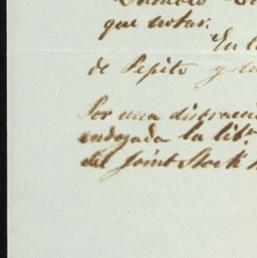 que notar.
En l
de Pepito y
Por una distracci
endozada la lib
del Joint Stock